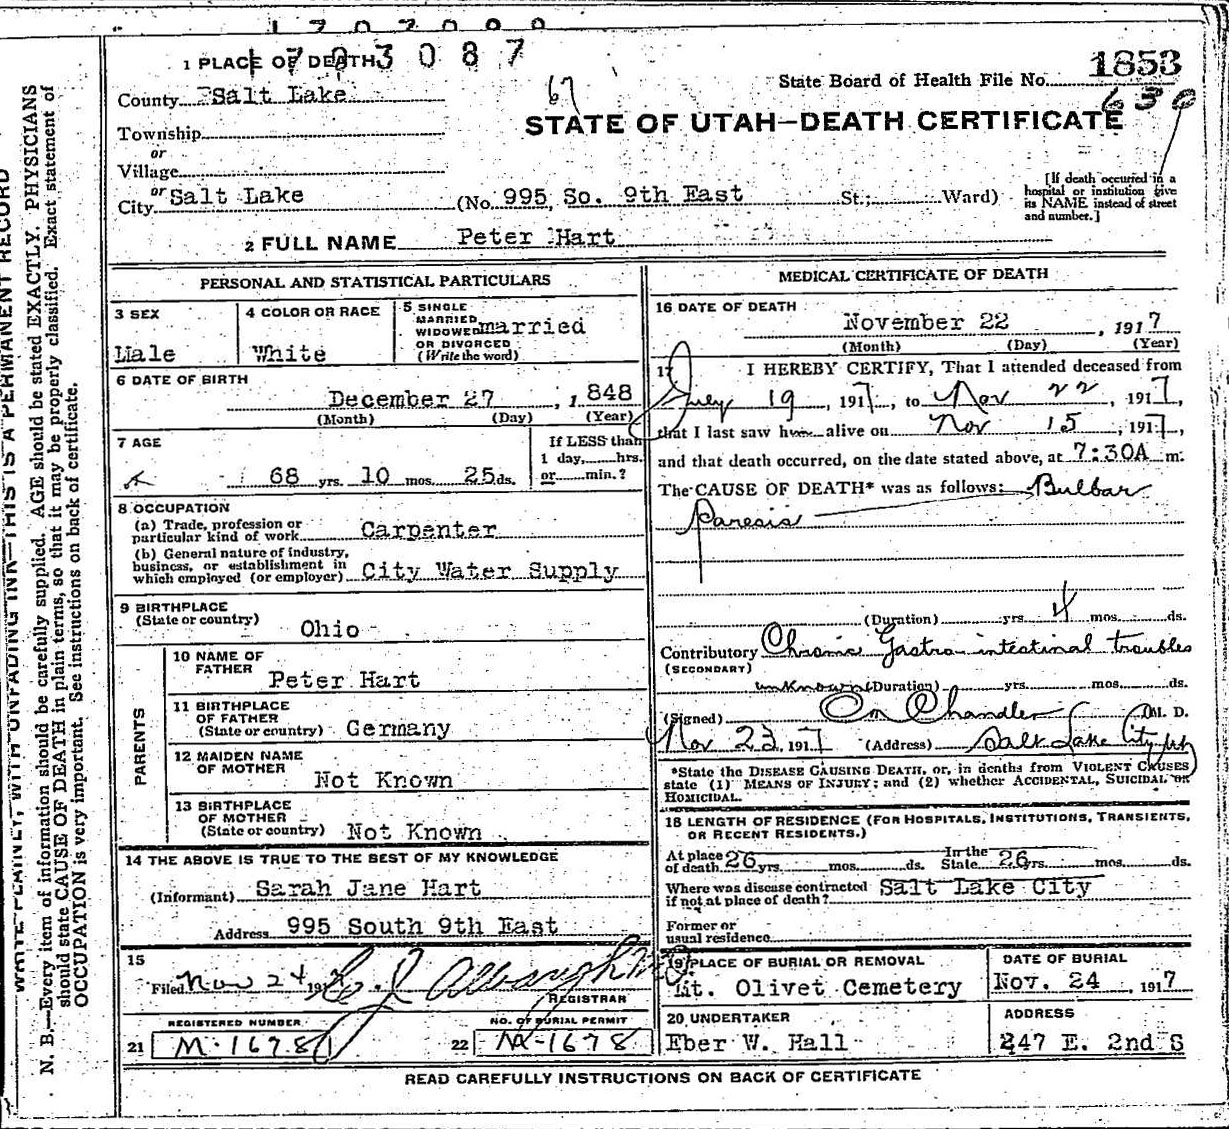 1703087
1 PLACE OF DEATH
State Board of Health File No. 1853
County Salt Lake
67
STATE OF UTAH—DEATH CERTIFICATE
Township
or
Village
or
City Salt Lake (No. 995 So. 9th East St.; Ward)
[If death occurred in a hospital or institution give its NAME instead of street and number.]
2 FULL NAME Peter Hart
PERSONAL AND STATISTICAL PARTICULARS
3 SEX
Male
4 COLOR OR RACE
White
5 SINGLE
MARRIED
WIDOWED married
OR DIVORCED
(Write the word)
6 DATE OF BIRTH
December 27, 1848
(Month) (Day) (Year)
7 AGE
68 yrs. 10 mos. 25 ds.
If LESS than
1 day, hrs.
or min.?
8 OCCUPATION
(a) Trade, profession or
particular kind of work Carpenter
(b) General nature of industry,
business, or establishment in
which employed (or employer) City Water Supply
9 BIRTHPLACE
(State or country)
Ohio
PARENTS
10 NAME OF
FATHER
Peter Hart
11 BIRTHPLACE
OF FATHER
(State or country) Germany
12 MAIDEN NAME
OF MOTHER
Not Known
13 BIRTHPLACE
OF MOTHER
(State or country) Not Known
14 THE ABOVE IS TRUE TO THE BEST OF MY KNOWLEDGE
(Informant) Sarah Jane Hart
Address 995 South 9th East
15
Filed Nov 24 191
REGISTRAR
REGISTERED NUMBER
21 M-1678
NO. OF BURIAL PERMIT
22 M-1678
MEDICAL CERTIFICATE OF DEATH
16 DATE OF DEATH
November 22, 1917
(Month) (Day) (Year)
17 I HEREBY CERTIFY, That I attended deceased from
July 19, 1917, to Nov 22, 1917,
that I last saw him alive on Nov 15, 1917,
and that death occurred, on the date stated above, at 7:30A m.
The CAUSE OF DEATH* was as follows: Bulbar
Paresis
(Duration) yrs. 4 mos. ds.
Contributory Chronic Gastro intestinal troubles
(SECONDARY)
unknown (Duration) yrs. mos. ds.
(Signed) Chandler M. D.
Nov 23, 1917 (Address) Salt Lake City
*State the DISEASE CAUSING DEATH, or, in deaths from VIOLENT CAUSES
state (1) MEANS OF INJURY; and (2) whether ACCIDENTAL, SUICIDAL OR
HOMICIDAL.
18 LENGTH OF RESIDENCE (FOR HOSPITALS, INSTITUTIONS, TRANSIENTS,
OR RECENT RESIDENTS.)
At place
of death 26 yrs. mos. ds. In the
State 26 yrs. mos. ds.
Where was disease contracted Salt Lake City
if not at place of death?
Former or
usual residence
19 PLACE OF BURIAL OR REMOVAL
Mt. Olivet Cemetery
DATE OF BURIAL
Nov. 24, 1917
20 UNDERTAKER
Eber W. Hall
ADDRESS
247 E. 2nd S
READ CAREFULLY INSTRUCTIONS ON BACK OF CERTIFICATE
WRITE PLAINLY, WITH UNFADING INK—THIS IS A PERMANENT RECORD
N. B.—Every item of information should be carefully supplied. AGE should be stated EXACTLY. PHYSICIANS
should state CAUSE OF DEATH in plain terms, so that it may be properly classified. Exact statement of
OCCUPATION is very important. See instructions on back of certificate.